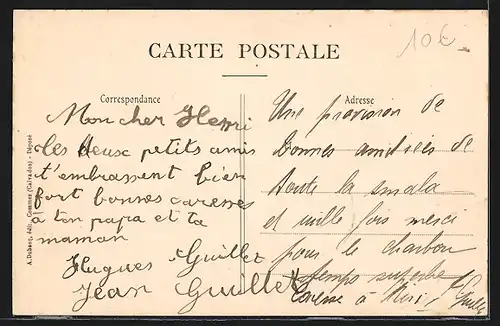 CARTE POSTALE
10€
Correspondance
Mon cher Henri
Les deux petits amis
t'embrassent bien
fort bonnes caresses
à ton papa et ta
maman
Hugues Guillet
Jean Guillet
Adresse
Une provision de
bonnes amitiés de
toute la smala
et mille fois merci
pour le charbon
temps superbe
Caresse à
A. Dubosq, édit., (Calvados) - Déposé